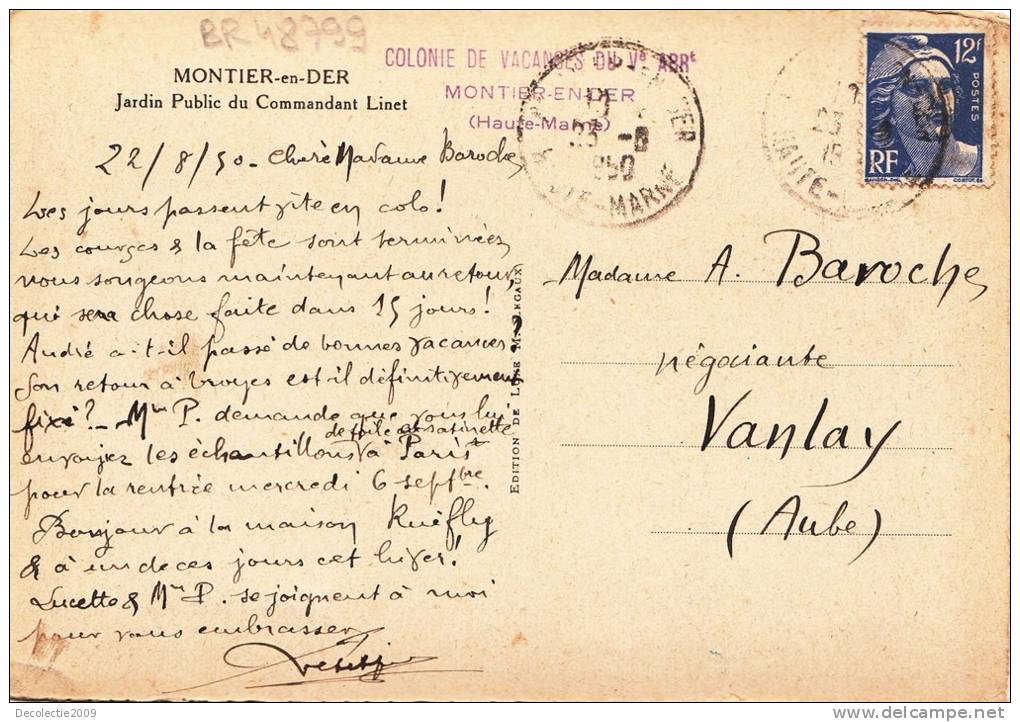 BR 48799
COLONIE DE VACANCES DU Ve ARRt
MONTIER-EN-DER
(Haute-Marne)
MONTIER-en-DER
Jardin Public du Commandant Linet
12f
POSTES
RF
HAUTE-MARNE
HAUTE-
22/8/50 - Chère Madame Baroche
Les jours passent vite en colo!
Les courses & la fête sont terminées,
nous songeons maintenant au retour,
qui sera chose faite dans 15 jours!
André a-t-il passé de bonnes vacances?
Son retour à Troyes est-il définitivement
fixé? - Mme P. demande que vous lui
de toile et satinette
envoyiez les échantillons à Paris
pour la rentrée mercredi 6 septbre.
Bonjour à la maison Ruéflly
& à un de ces jours cet hiver!
Lucette & Mme P. se joignent à moi
pour vous embrasser
EDITION DE LUXE
Madame A. Baroche
négociante
Vanlay
(Aube)
Decolectie2009
delcampe.net